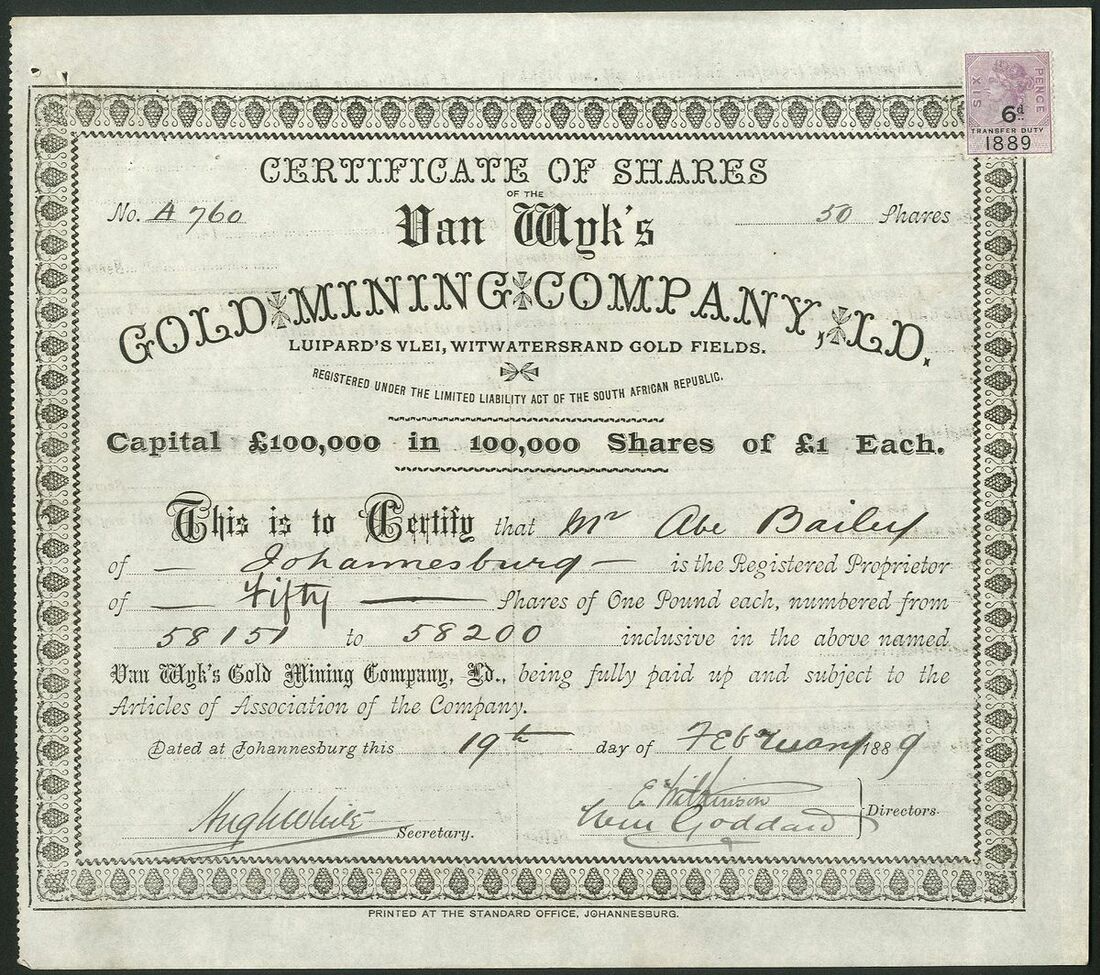 SIX PENCE
6d
TRANSFER DUTY
1889
CERTIFICATE OF SHARES
OF THE
No. A 760
50 Shares
Van Wyk's
GOLD MINING COMPANY, LD.
LUIPARD'S VLEI, WITWATERSRAND GOLD FIELDS.
REGISTERED UNDER THE LIMITED LIABILITY ACT OF THE SOUTH AFRICAN REPUBLIC.
Capital £100,000 in 100,000 Shares of £1 Each.
This is to Certify that Mr Abe Bailey
of — Johannesburg — is the Registered Proprietor
of — Fifty — Shares of One Pound each, numbered from
58151 to 58200 inclusive in the above named
Van Wyk's Gold Mining Company, Ld., being fully paid up and subject to the
Articles of Association of the Company.
Dated at Johannesburg this 19th day of February 1889
Hugh White Secretary.
E Wilkinson
Wm Goddard
Directors.
PRINTED AT THE STANDARD OFFICE, JOHANNESBURG.